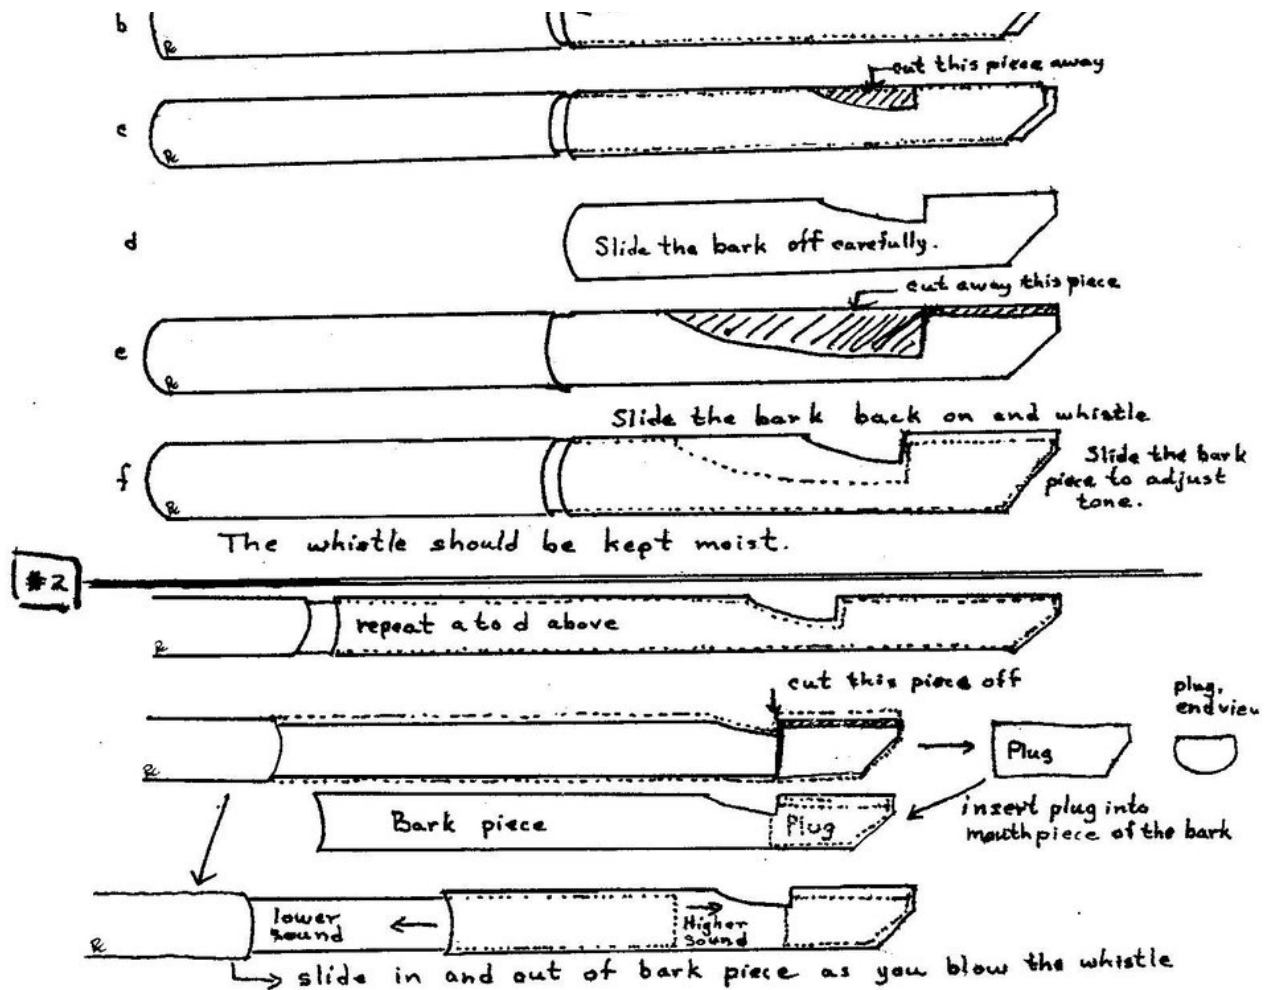 b
cut this piece away
c
d
Slide the bark off carefully.
cut away this piece
e
Slide the bark back on and whistle
f
Slide the bark
piece to adjust
tone.
The whistle should be kept moist.
#2
repeat a to d above
cut this piece off
plug,
end view
Plug
insert plug into
mouthpiece of the bark
Bark piece
Plug
lower
sound
Higher
sound
slide in and out of bark piece as you blow the whistle